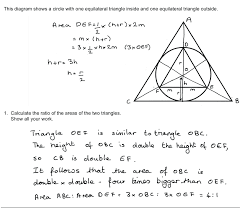 This diagram shows a circle with one equilateral triangle inside and one equilateral triangle outside.
Area DEF = 1/2 × (h+r) × 2m
= m × (h+r)
= 3 × 1/2 × h × 2m (3×OEF)
h+r = 3h
h = r/2
A
D
r
r
O
h
E
m
F
C
B
1. Calculate the ratio of the areas of the two triangles.
Show all your work.
Triangle OEF is similar to triangle OBC.
The height of OBC is double the height of OEF,
so CB is double EF.
It follows that the area of OBC is
double × double - four times bigger than OEF.
Area ABC : Area DEF = 3×OBC : 3×OEF = 4:1